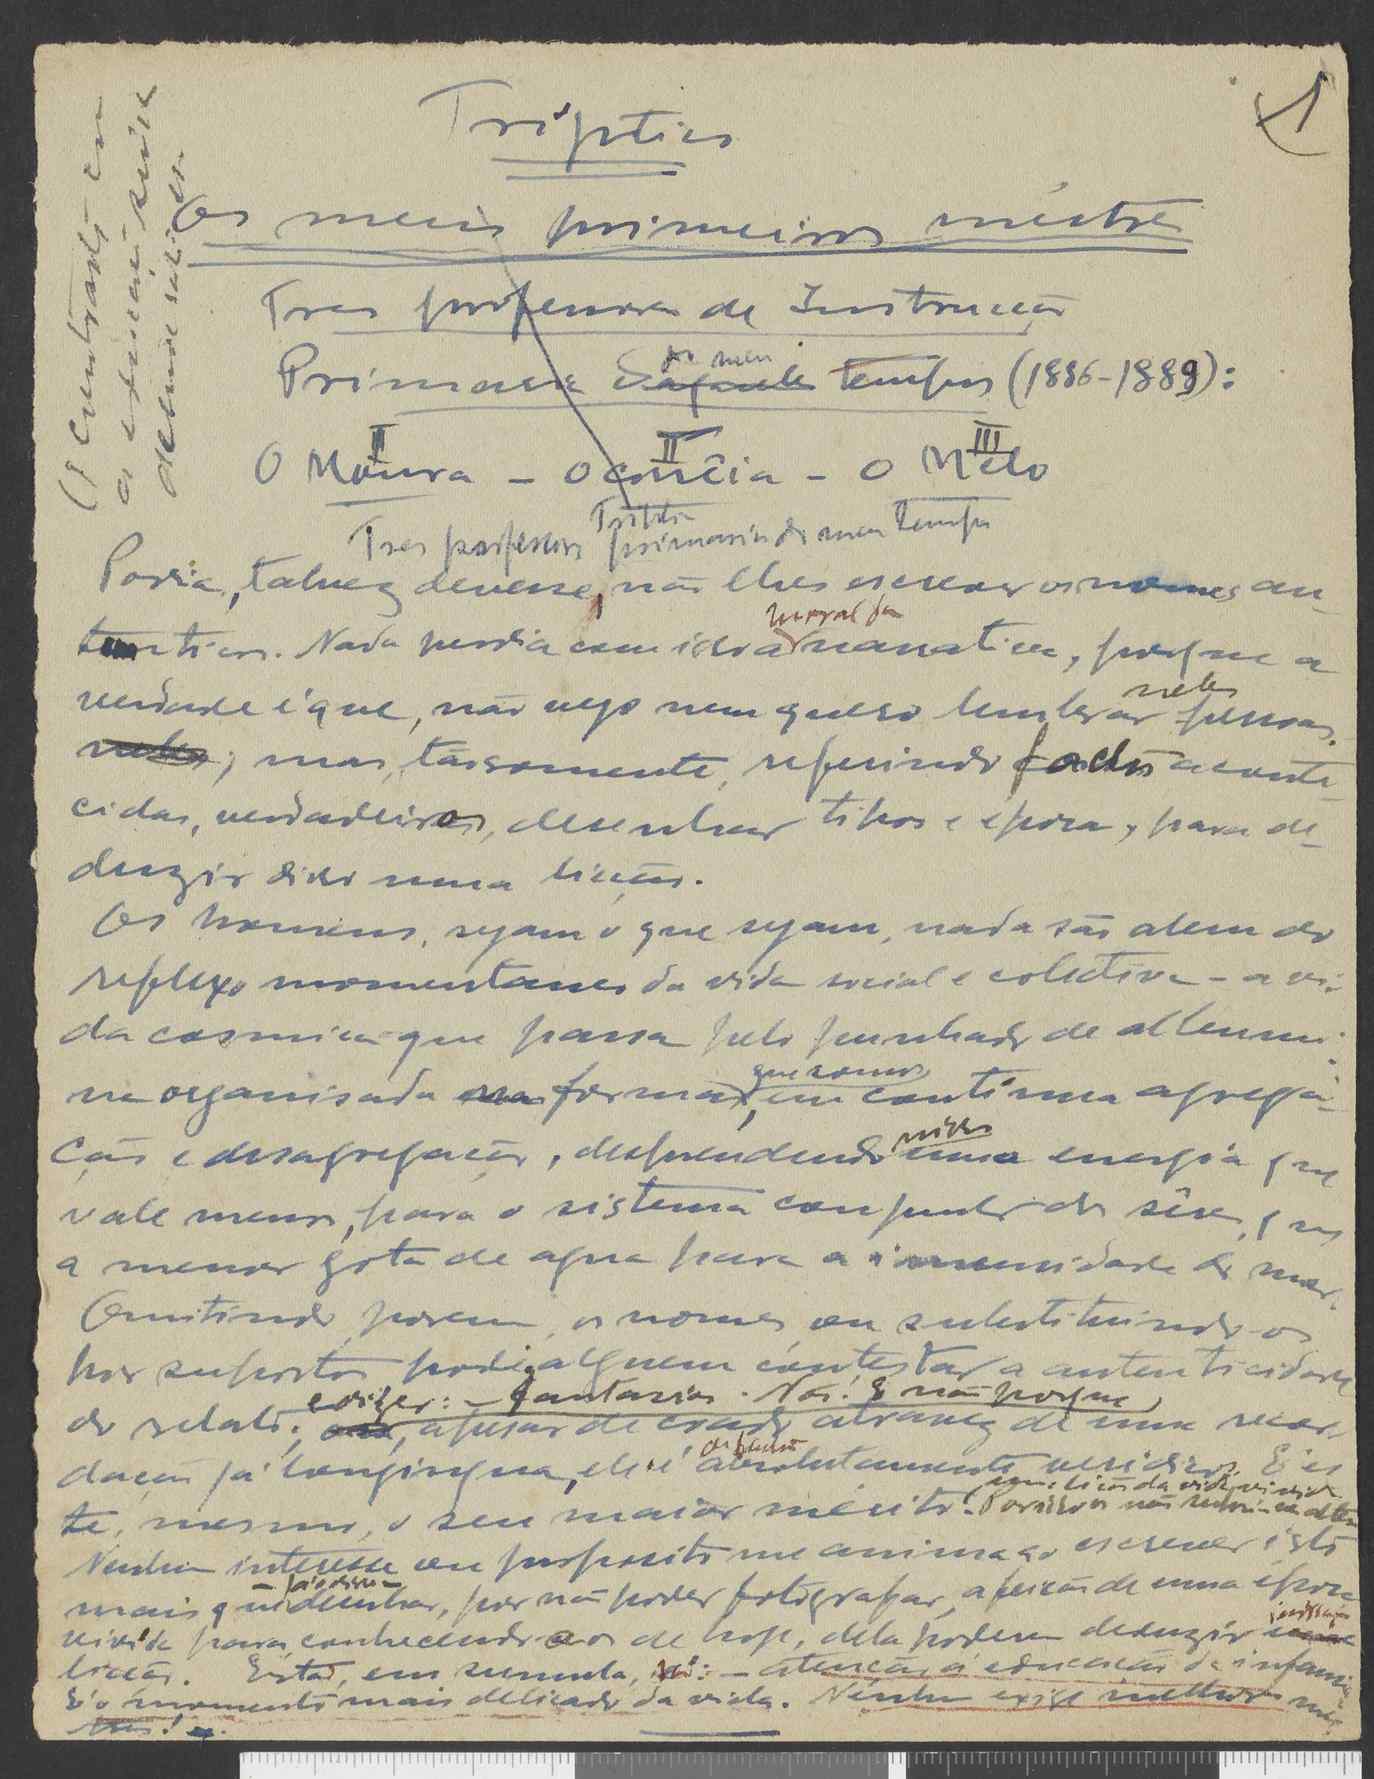 1
Triptico
Os meus primeiros mestres
Tres professores de Instrucção
Primaria do meu tempo (1886-1889):
II II III
O Moura - O Corrêia - O Mélo
Tres professores primarios do meu tempo
Podia, talvez devesse, não lhes escrever os nomes au-
tenticos. Nada perdia com isso a moral da narrativa, porque a
verdade é que, não vejo nem quero lembrar neles pessoas.
; mas, tãosomente, referindo factos aconte-
cidos, verdadeiros, desenhar tipos e época, para de-
duzir disso uma lição.
Os homens, sejam o que sejam, nada são alem do
reflexo momentaneo da vida social e coletiva - a vi-
da cosmica que passa pelo punhado de albumi-
na organisada forma, que somos, em contínua agrega-
ção e desagregação, desprendendo nisso uma energia que
vale menos, para o sistema conjunto do sêr, que
a menor gota de agua para a imensidade do mar.
Omitindo, porem, os nomes, ou substituindo-os
por supostos podia alguem contestar a autenticidade
do relato; e dizer: - Fantasias. Não! E não porque,
apesar de coado atravez de uma recor-
dação já longinqua, ele é absolutamente veridico. E' es-
te, mesmo, o seu maior mérito: lição da vida vivida.
Por isso os não
Nenhum interesse ou proposito me anima ao escrever isto
mais que - já o disse - desenhar, por não poder fotografar, a feição de uma época
vivida para conhecendo-a os de hoje, dela poderem deduzir
lição. Esta, em sumula, : - atenção á educação da infancia.
E' o momento mais delicado da vida. Nenhum exige melhores mes-
tres!